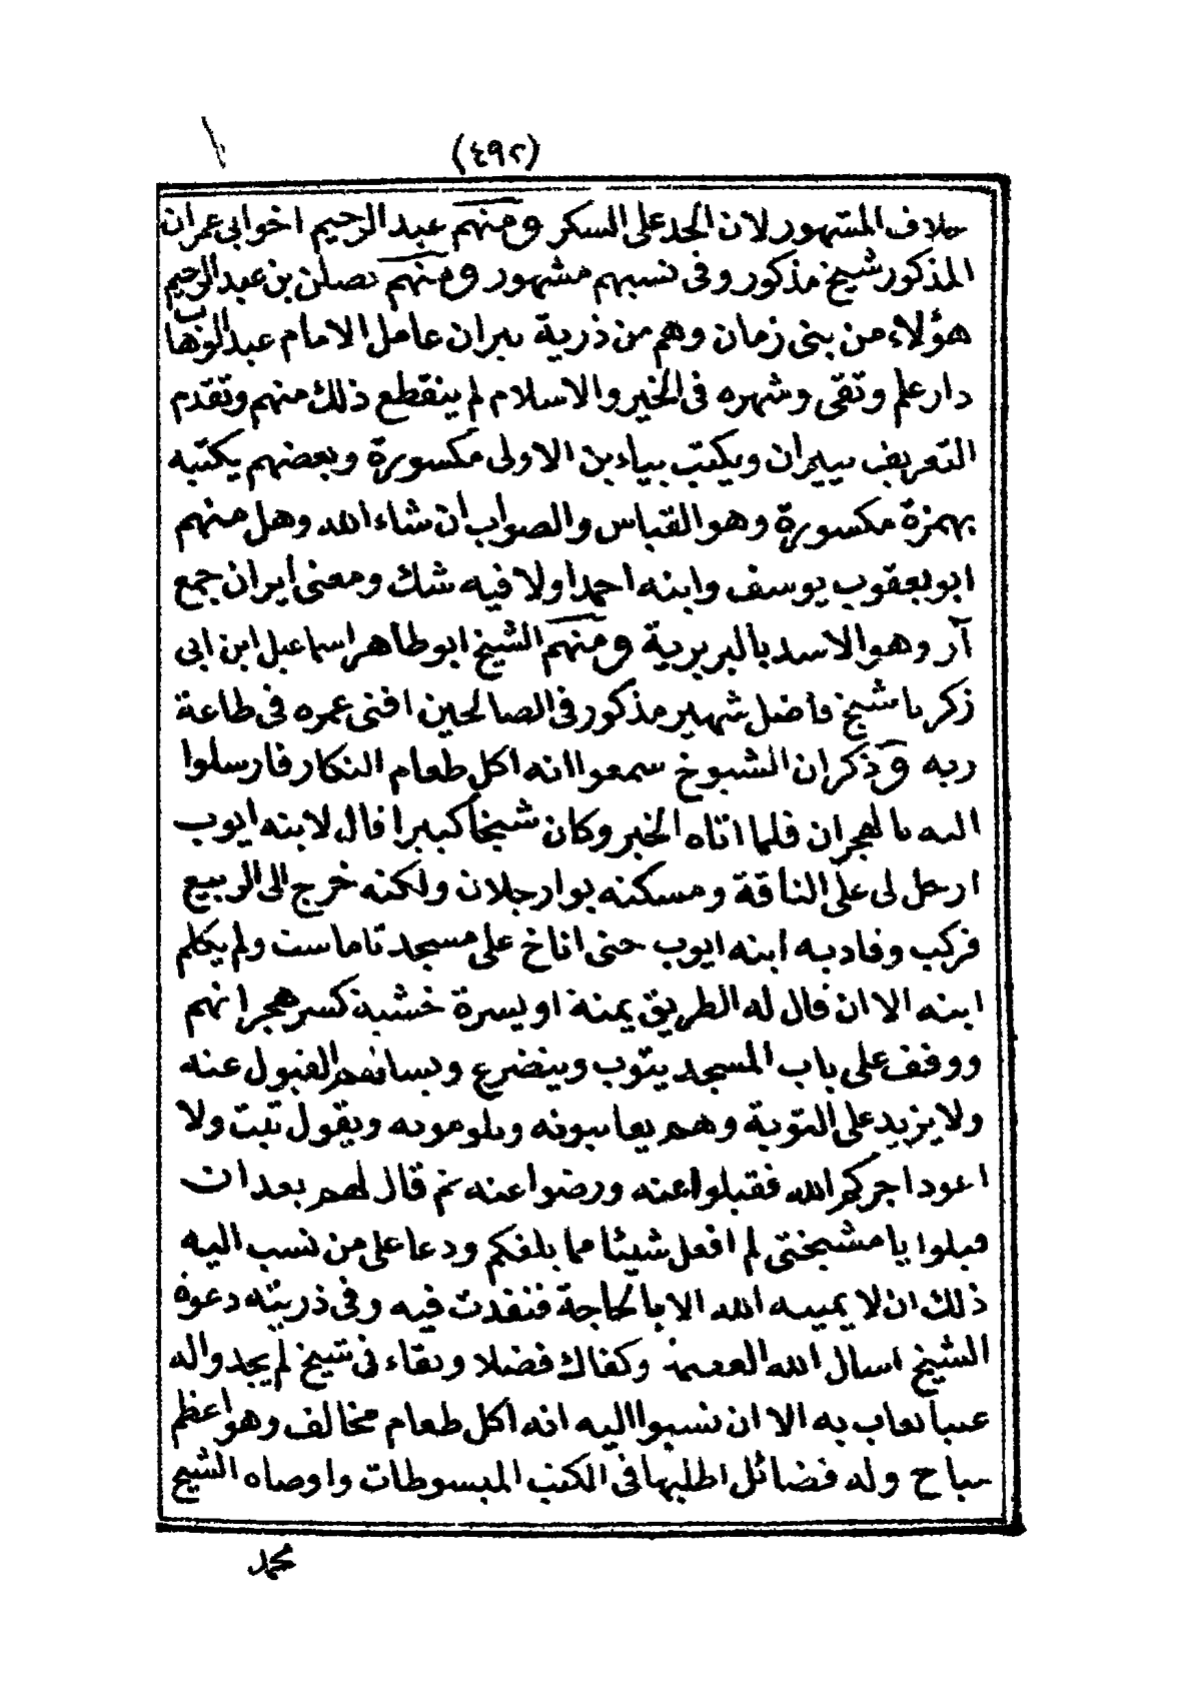 (٤٩٢)
خلاف المشهور لان الحد على السكر ومنهم عبد الرحيم اخو ابى عمران
المذكور شيخ مذكور وفى نسبهم مشهور ومنهم يصلتن بن عبد الرحيم
هؤلاء من بنى زمان وهم من ذرية بيران عامل الامام عبد الوهاب
دار علم وتقى وشهره فى الخير والاسلام لم ينقطع ذلك منهم وتقدم
التعريف بييران ويكتب بياءين الاولى مكسورة وبعضهم يكتبه
بهمزة مكسورة وهو القياس والصواب ان شاء الله وهل منهم
ابو يعقوب يوسف وابنه احمد اولا فيه شك ومعنى ايران جمع
آر وهو الاسد بالبربرية ومنهم الشيخ ابو طاهر اسماعيل ابن ابى
زكريا شيخ فاضل شهير مذكور فى الصالحين افنى عمره فى طاعة
ربه وذكر ان الشيوخ سمعوا انه اكل طعام النكار فارسلوا
اليه بالهجران فلما اتاه الخبر وكان شيخا كبيرا قال لابنه ايوب
ارحل لى على الناقة ومسكنه بوارجلان ولكنه خرج الى الربيع
فركب وقاد به ابنه ايوب حتى اناخ على مسجد تاماست ولم يكلم
ابنه الا ان قال له الطريق يمنة او يسرة خشية كسر هجرانهم
ووقف على باب المسجد يتوب ويتضرع ويسالهم القبول عنه
ولا يزيد على التوبة وهم يعاتبونه ويلومونه ويقول تبت ولا
اعود اجركم الله فقبلوا عنه ورضوا عنه ثم قال لهم بعد ان
قبلوا يا مشيختى لم افعل شيئا مما بلغكم ودعا على من نسب اليه
ذلك ان لا يميته الله الا بالحاجة فنفدت فيه وفى ذريته دعوة
الشيخ اسال الله العصمة وكفاك فضلا وبقاء فى شيخ لم يجدوا له
عيبا يعاب به الا ان نسبوا اليه انه اكل طعام مخالف وهو اعظم
مباح وله فضائل اطلبها فى الكتب المبسوطات واوصاه الشيخ
محمد